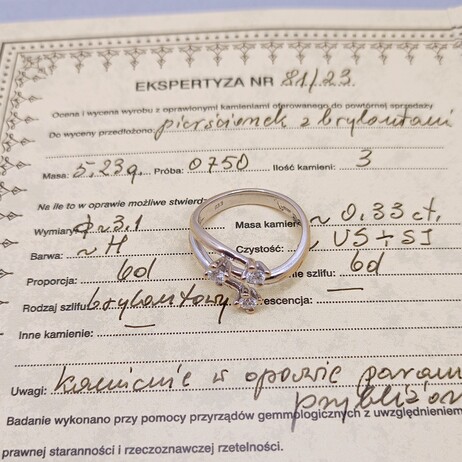 EKSPERTYZA NR 21/23.
Ocena i wycena wyrobu z oprawionymi kamieniami oferowanego do powtórnej sprzedaży
Do wyceny przedłożono: pierścionek z brylantami
Masa: 5,23g. Próba: 0750 Ilość kamieni: 3
Na ile to w oprawie możliwe stwierdz
Wymiary ϕ~3,1 Masa kamie ~ 0,33 ct.
Barwa: ~ H Czystość: ~ VS÷SI
Proporcja: bd szlifu: bd
Rodzaj szlifu: brylantowy escencja: —
Inne kamienie: —
Uwagi: kamienie w oprawie param
przybliżon
Badanie wykonano przy pomocy przyrządów gemmologicznych z uwzględnieniem
prawnej staranności i rzeczoznawczej rzetelności.